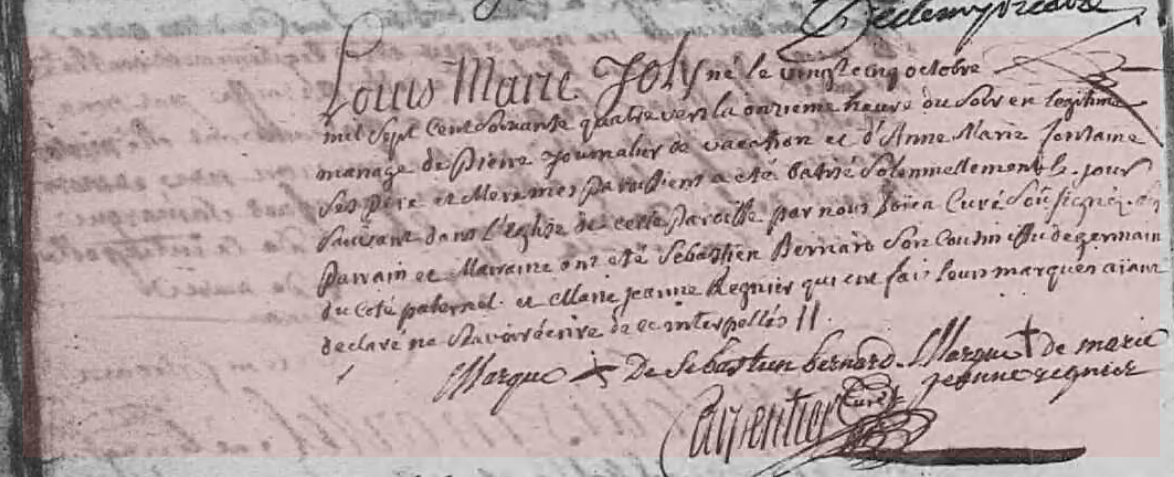 Louis Marie Joly né le vingtcinq octobre
mil sept cent soixante quatre vers la onzieme heure du soir en legitime
mariage de Pierre Journalier de vacation et d'Anne Marie fontaine
ses pere et mere mes paroissiens a été batisé solemnellement le jour
suivant dans l'eglise de cette paroisse par nous curé soussigné. Les
parain et maraine ont été Sebastien Bernard son cousin issu de germain
du coté paternel. et Marie jeanne Regnier qui ont fais leurs marques aiant
declaré ne sçavoir écrire de ce interpellés //.
Marque + De Sebastien bernard. Marque + de marie
jeanne regnier
Carpentier Curé